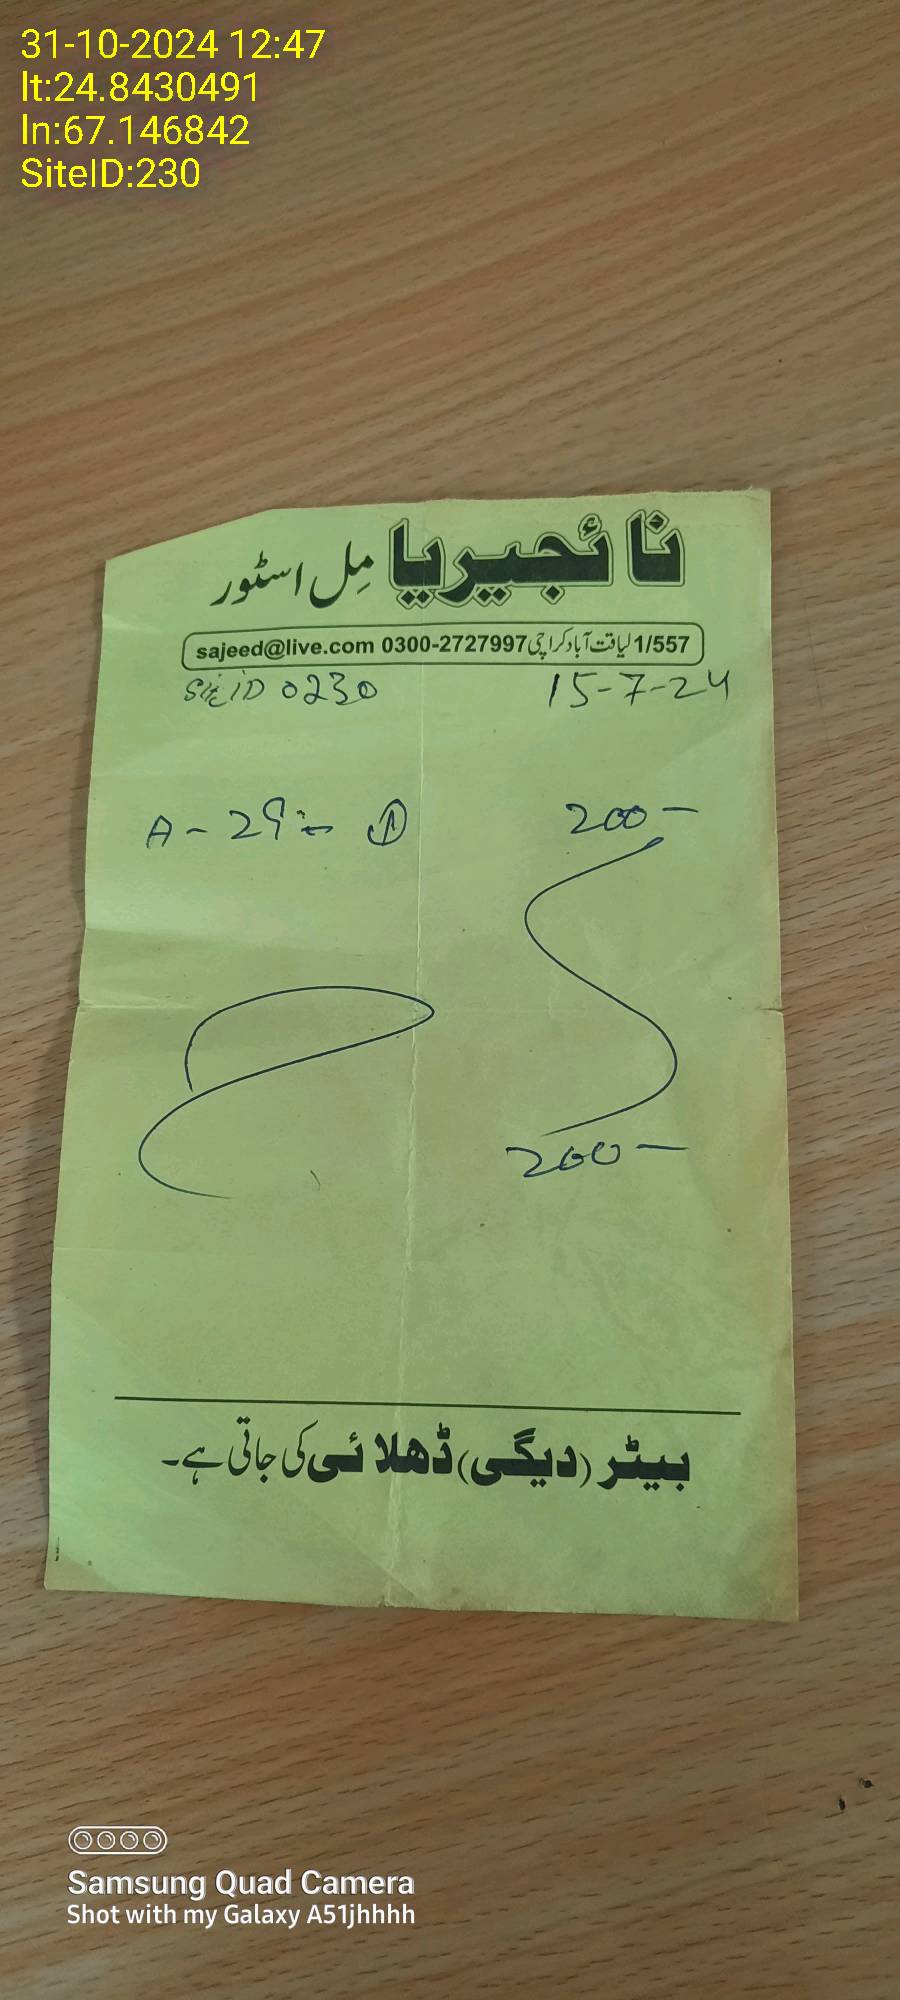 31-10-2024 12:47
lt:24.8430491
ln:67.146842
SiteID:230
نائجیریا مِل اسٹور
1/557 لیاقت آباد کراچی 0300-2727997 sajeed@live.com
Site iD 0230 15-7-24
A-29 ① 200-
200-
بیٹر (دیگی) ڈھلائی کی جاتی ہے۔
Samsung Quad Camera
Shot with my Galaxy A51jhhhh